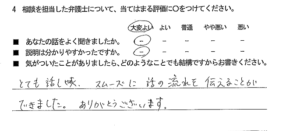 4 相談を担当した弁護士について、当てはまる評価に○をつけてください。
大変よい よい 普通 やや悪い 悪い
■ あなたの話をよく聞きましたか。 - - - - -
■ 説明は分かりやすかったですか。 - - - - -
■ 気がついたことがありましたら、どのようなことでも結構ですからお書きください。
とても話し易く、スムーズに話の流れを伝えることが
できました。ありがとうございます。